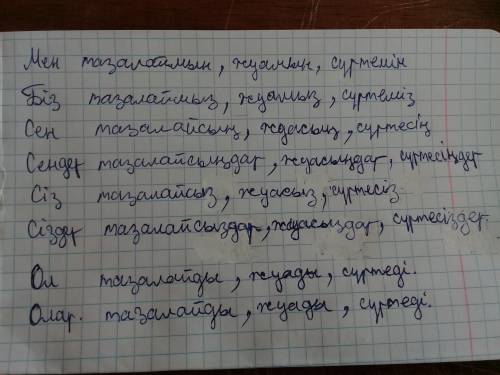 Мен тазалаймын, жуамын, сүртемін
Біз тазалаймыз, жуамыз, сүртеміз
Сен тазалайсың, жуасың, сүртесің
Сендер тазалайсыңдар, жуасыңдар, сүртесіңдер
Сіз тазалайсыз, жуасыз, сүртесіз.
Сіздер тазалайсыздар, жуасыздар, сүртесіздер.
Ол тазалайды, жуады, сүртеді.
Олар. тазалайды, жуады, сүртеді.